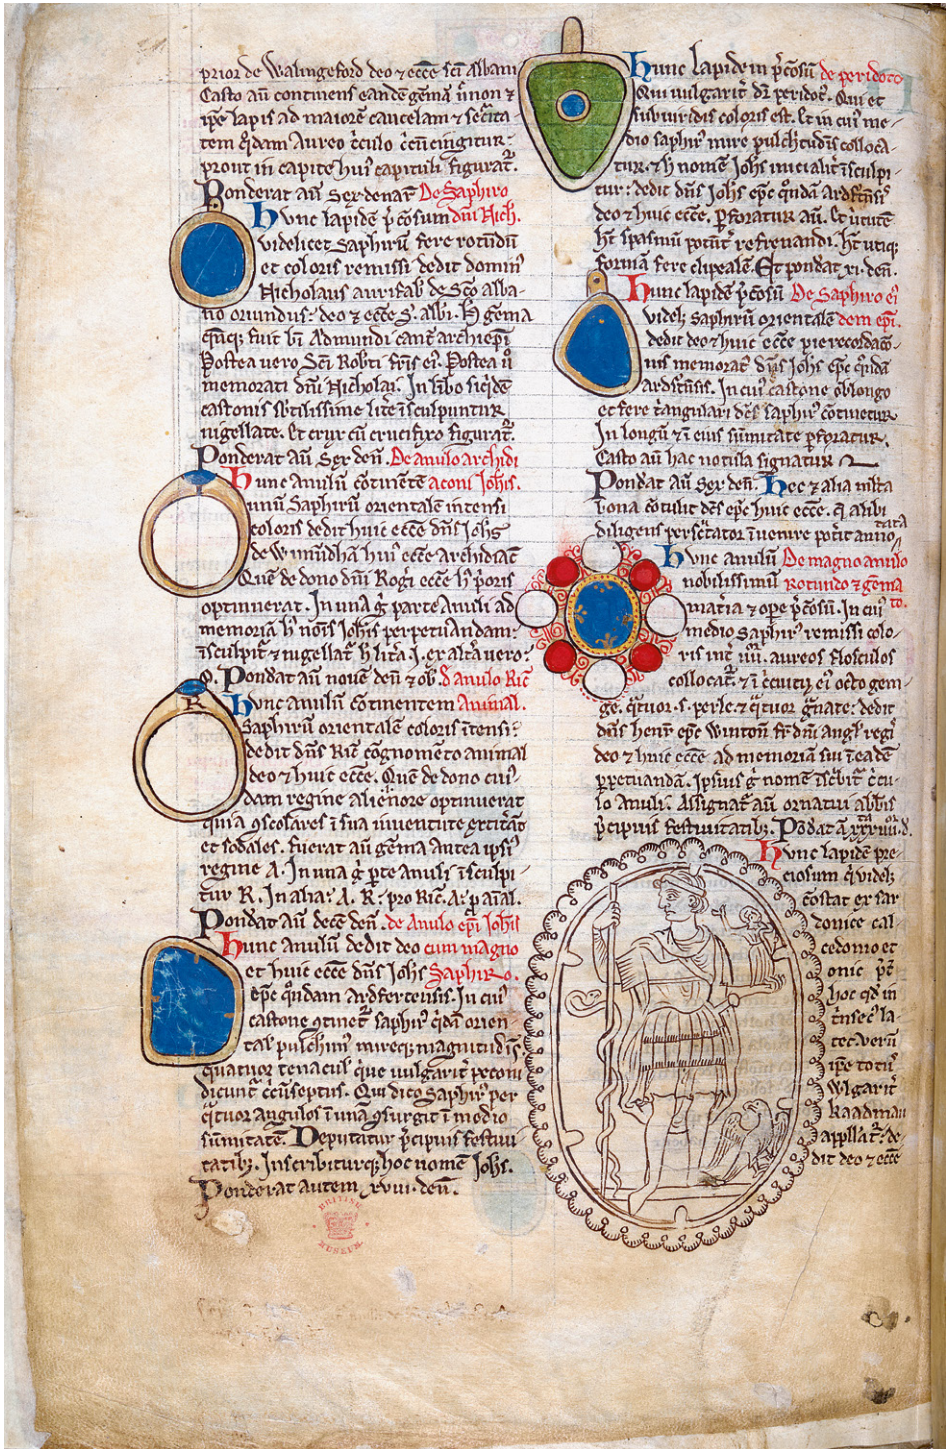 prior de Walingeford deo ⁊ ecc̄e sc̄i Albani
Casto aū continens eandē gēmā ñ non ⁊
ip̄e lapis ad maiorē cautelam ⁊ sec̄ita
tem q̄dam Aureo c̄culo c̄cū cingitur·
prout in capite hui᾽ capituli figurat᷑.
Ponderat aū Sex denar̄ De Saphiro
Hunc lapidē p̄c̄osum dn̄i Nich̄.
videlicet Saphirū fere rotūdū
et coloris remissi dedit domin᾽
Nicholaus aurifab̄ de Sc̄o alba-
no oriundus: deo ⁊ ecc̄e S. albi. H̄ gēma
q̄nq̨ fuit b̄i Admundi cant̄ archiep̄i
Postea vero Sc̄i Rob̄ti fr̄is ei᾽. Postea ū
memorati dn̄i Nicholai. In līb̄o siq̄dē
castonis sb̄tilissime lit̄e īsculpuntur
nigellate. Et crux cū crucifixo figurat᷑.
Ponderat aū Sex den̄. De anulo archidi
Hunc anulū c̄otinētē aconi Joh̄is.
unū Saphirū orientalē intensi
coloris dedit huic ecc̄e dn̄s Joh̄s
de Wimūdhā hui᾽ ecc̄e archidiac̄
Quē de dono dn̄i Rog̃i ecc̄e h᾽ p̄oris
optinuerat. In una g̊ parte Anuli ad
memoriā h᾽ nōis Joh̄is perpetuandam:
īsculpit᷑ ⁊ nigellat᷑ h̄ lit̄a I. ex alt̄a uero:
O. Pondat aū nouē den̄ ⁊ ob̄. d̄ anulo Ric̄
Hunc anulū c̄ontinentem Animal.
Saphirū orientalē coloris ītensi:
dedit dn̄s Ric̄ c̄ognom̄to animal
deo ⁊ huic ecc̄e. Quē de dono cui᾽-
dam regine alienore optinuerat
quia ꝯscolares ī sua iuuentute extit̄āt
et sodales. fuerat aū gēma antea ipsi᾽
regine A. In una g̊ p̄te anuli īsculpi
tur R. In alia: A. R: pro Ric̄. A: p̱ aīal.
Pondat aū decē den̄. de Anulo ep̄i Joh̄is
Hunc anulū dedit deo cum magno
et huic ecc̄e dn̄s Joh̄s Saphiro.
ep̄c q̊ndam Ardfertensis. In cui᾽
castone ꝯtinet᷑ saphir᾽ q̄dā orien-
tal᾽ pulch̄im᾽ mireq̨ magnitudīs.
quatuor tenacul᾽ q̄ue uulgarit᷑ peconi
dicunt᷑ c̄cūseptus. Qui dico Saphir᾽ per
q̄tuor angulos ī unā ꝯsurgit ī modio
sūmitatē. Deputatur p̄cipuis festiui
tatib̄. Inscribiturq̨ hoc nomē Joh̄s.
Ponderat autem xviii· den̄.
Hunc lapidem p̄c̄osū de peridoto
Qui uulgarit᷑ dr̄ peridot᾽. Qui et
subuiridis coloris est. Et in cui᾽ me-
dio saphir᾽ mire pulch̄tudīs colloca-
tur. ⁊ h̄ nomē Joh̄s inicialit᷑ īsculpi-
tur: dedit dn̄s Joh̄s ep̄c q̊ndā Ardf̄tn̄s᾽
deo ⁊ huic ecc̄e. p̱foratur aū. Et ūtutē
h̄t spasmū potūt᷑ refrenandi. h̄t utiq̨
formā fere clipealē. Et pondat xi. den̄.
Hunc lapidē p̄c̄osū De Saphiro ei᾽
videl̄ Saphirū orientalē dem ep̄i.
dedit deo ⁊ huic ecc̄e pie recordac̄-
nis memorat᾽ dn̄s Joh̄s ep̄c q̊ndā
ardf̄tn̄sis. In cui᾽ castone oblongo
et fere t̄angulari dc̄s saphir᾽ c̄otinetur
In longū ⁊ ī eius sūmitate p̱foratur.
Casto aū hac notula signatur
Pondat aū Sex den̄. Hec ⁊ alia m̄lta
bona c̄otulit dc̄s ep̄c huic ecc̄e. q̄ alibi
diligens persc̄tator īuenire pot̄it anno
tata
Hunc anulū De magno anulo
nobilissimū rotundo ⁊ gēma
mat̄ia ⁊ ope p̄c̄osū. In cui᾽ to.
medio Saphir᾽ remissi colo-
ris int᷑ iiii᷑. aureos flosculos
collocat᷑. ⁊ ī c̄cuitu ei᾽ octo gem-
ge. q̄tuor .s. perle ⁊ q̄tuor g̃nate: dedit
dn̄s henr̄ ep̄c Winton̄ fr̄ dn̄i angl̄ regis
deo ⁊ huic ecc̄e ad memoriā sui ī eadē
p̱petuandā. Ipsius g̊ nomē īsc̄bit᷑ c̄cu-
lo Anuli. Assignat᷑ aū ornatui abb̄is
p̄cipuis festiuitatib̄. Pōdat ā xxxiiii. d̄.
Hunc lapidem pre-
ciosum q̄ videl̄
c̄ostat ex sar
donice cal-
cedonio et
onic p̄t̄
hoc qd̄ in
t̄nsec᾽ la-
tet: uerū
ip̄e totū᾽
wlgarit᷑
kaadmau
appllat᷑: de-
dit deo ⁊ ecc̄e
R
BRITISH
MUSEUM